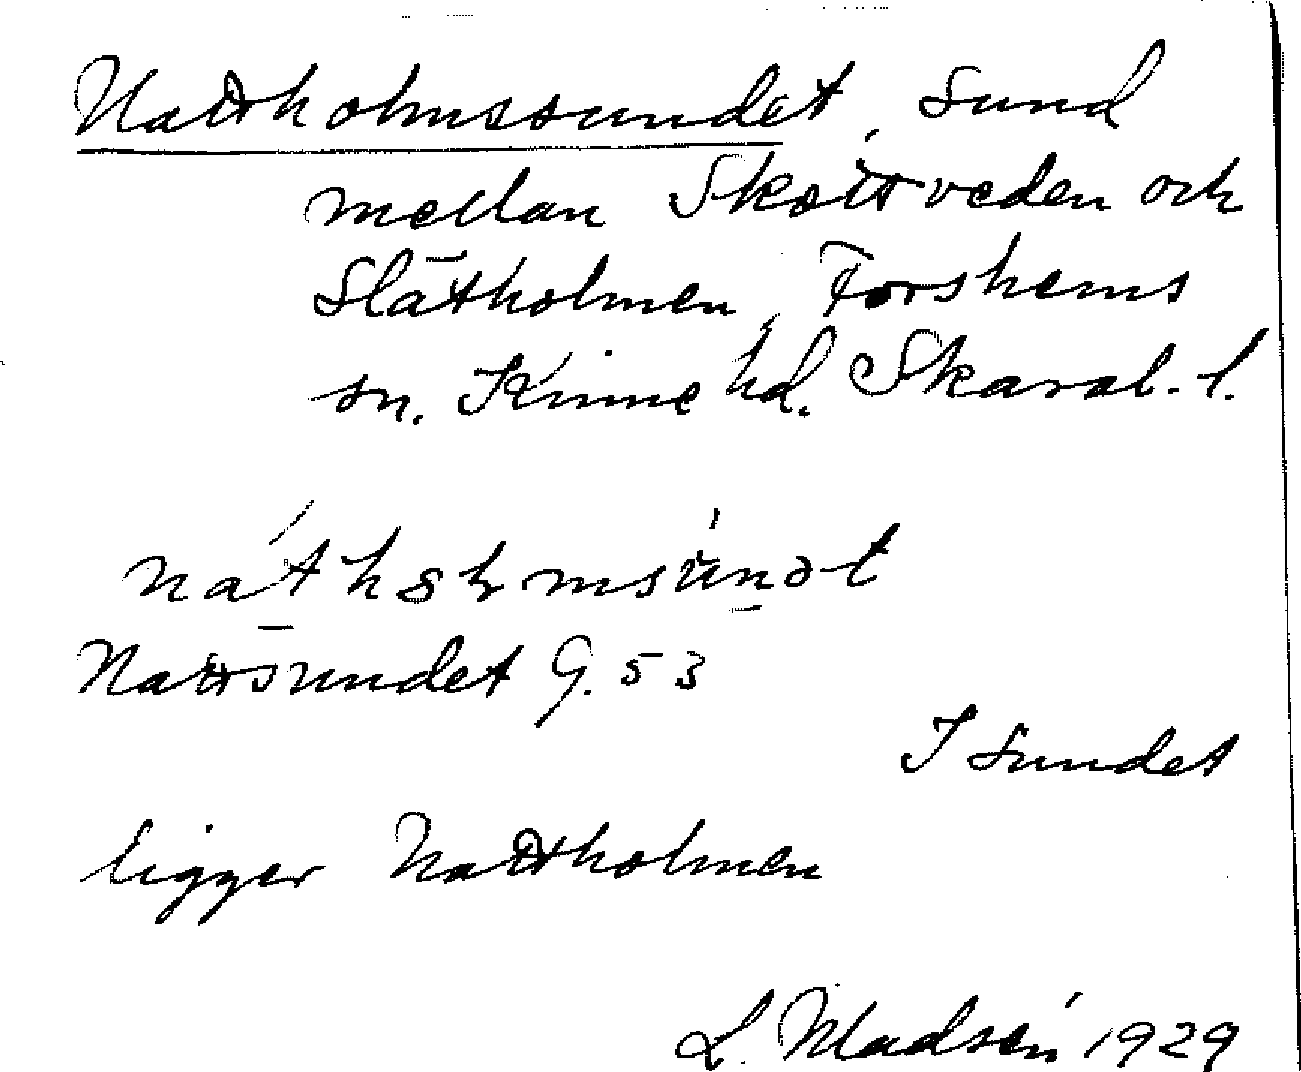 Nattholmssundet, sund
mellan Skottveden och
Slätholmen, Forshems
sn. Kinne hd. Skarab. l.
nátholmsùnət
Nattsundet G. 53
I sundet
ligger Nattholmen
L. Madsén 1929